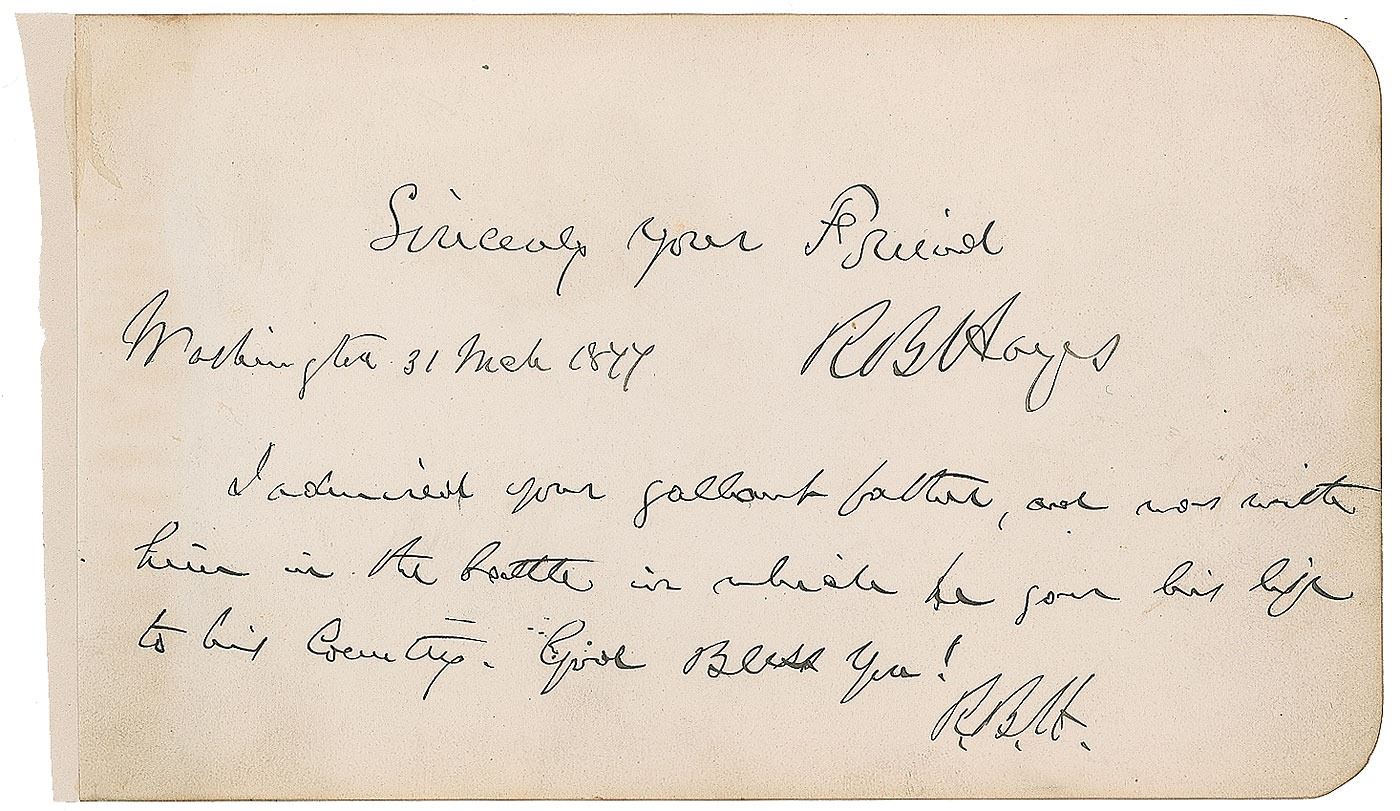 Sincerely your Friend
R B Hayes
Washington 31 Mch 1877
I admired your gallant father, and was with
him in the battle in which he gave his life
to his Country. God Bless You!
R.B.H.